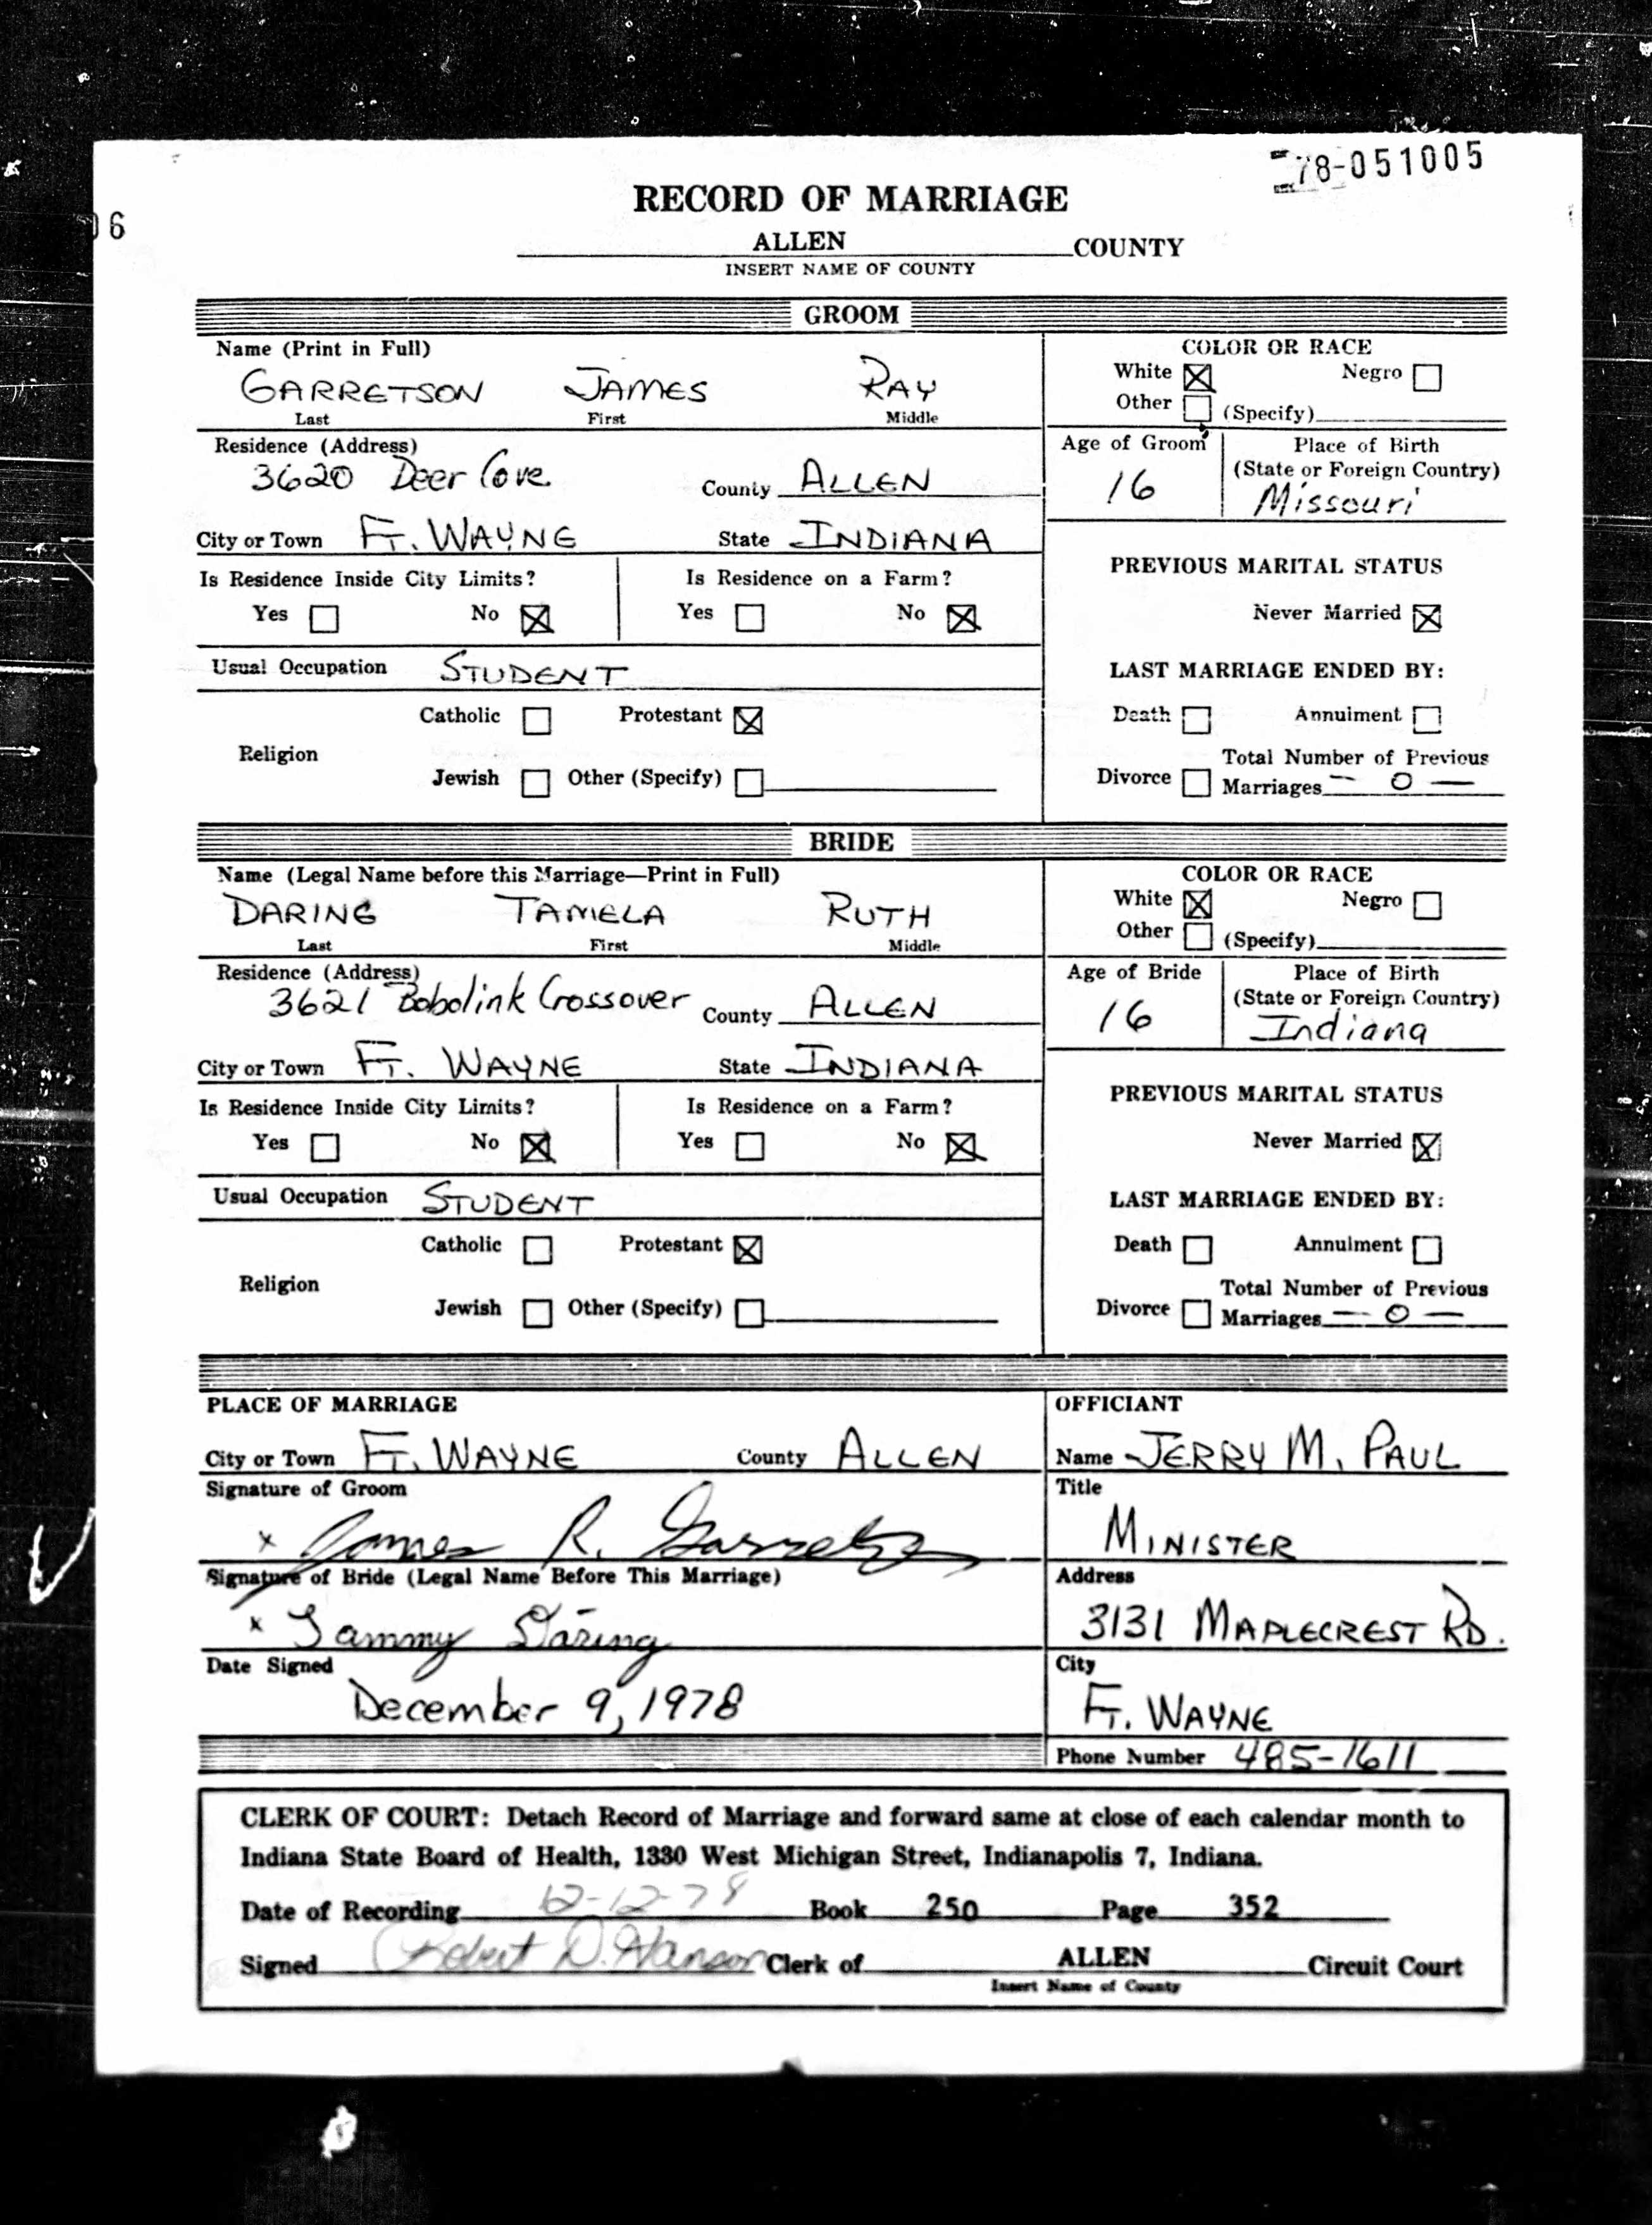 78-051005
RECORD OF MARRIAGE
06
ALLEN COUNTY
INSERT NAME OF COUNTY
GROOM
Name (Print in Full)
GARRETSON JAMES RAY
Last First Middle
COLOR OR RACE
White ☒ Negro ☐
Other ☐ (Specify)
Residence (Address)
3620 Deer Cove County ALLEN
Age of Groom
16
Place of Birth
(State or Foreign Country)
Missouri
City or Town FT. WAYNE State INDIANA
Is Residence Inside City Limits? Is Residence on a Farm?
Yes ☐ No ☒ Yes ☐ No ☒
PREVIOUS MARITAL STATUS
Never Married ☒
Usual Occupation STUDENT
LAST MARRIAGE ENDED BY:
Catholic ☐ Protestant ☒
Religion
Jewish ☐ Other (Specify) ☐
Death ☐ Annulment ☐
Total Number of Previous
Divorce ☐ Marriages — 0 —
BRIDE
Name (Legal Name before this Marriage—Print in Full)
DARING TAMELA RUTH
Last First Middle
COLOR OR RACE
White ☒ Negro ☐
Other ☐ (Specify)
Residence (Address)
3621 Bobolink Crossover County ALLEN
Age of Bride
16
Place of Birth
(State or Foreign Country)
Indiana
City or Town FT. WAYNE State INDIANA
Is Residence Inside City Limits? Is Residence on a Farm?
Yes ☐ No ☒ Yes ☐ No ☒
PREVIOUS MARITAL STATUS
Never Married ☒
Usual Occupation STUDENT
LAST MARRIAGE ENDED BY:
Catholic ☐ Protestant ☒
Religion
Jewish ☐ Other (Specify) ☐
Death ☐ Annulment ☐
Total Number of Previous
Divorce ☐ Marriages — 0 —
PLACE OF MARRIAGE
City or Town FT. WAYNE County ALLEN
Signature of Groom
x James R. Garretson
Signature of Bride (Legal Name Before This Marriage)
x Tammy Daring
Date Signed
December 9, 1978
OFFICIANT
Name JERRY M. PAUL
Title
MINISTER
Address
3131 MAPLECREST RD.
City
FT. WAYNE
Phone Number 485-1611
CLERK OF COURT: Detach Record of Marriage and forward same at close of each calendar month to
Indiana State Board of Health, 1330 West Michigan Street, Indianapolis 7, Indiana.
Date of Recording 12-12-78 Book 250 Page 352
Signed Robert D. Hanson Clerk of ALLEN Circuit Court
Insert Name of County